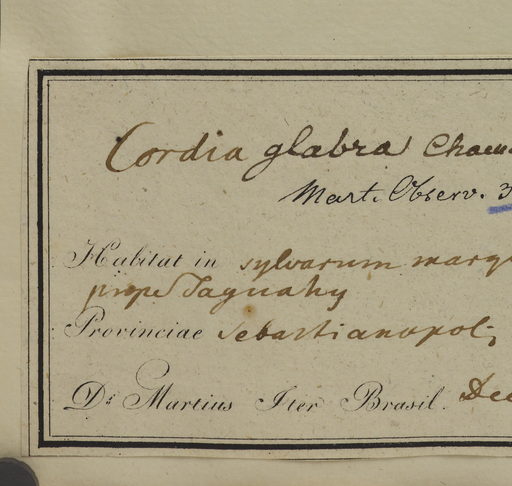 Cordia glabra Cham.
Mart. Observ. 3
Habitat in sylvarum marg
prope Taguahy
Provinciae Sebastianopol:
Dr. Martius Iter Brasil. Dec